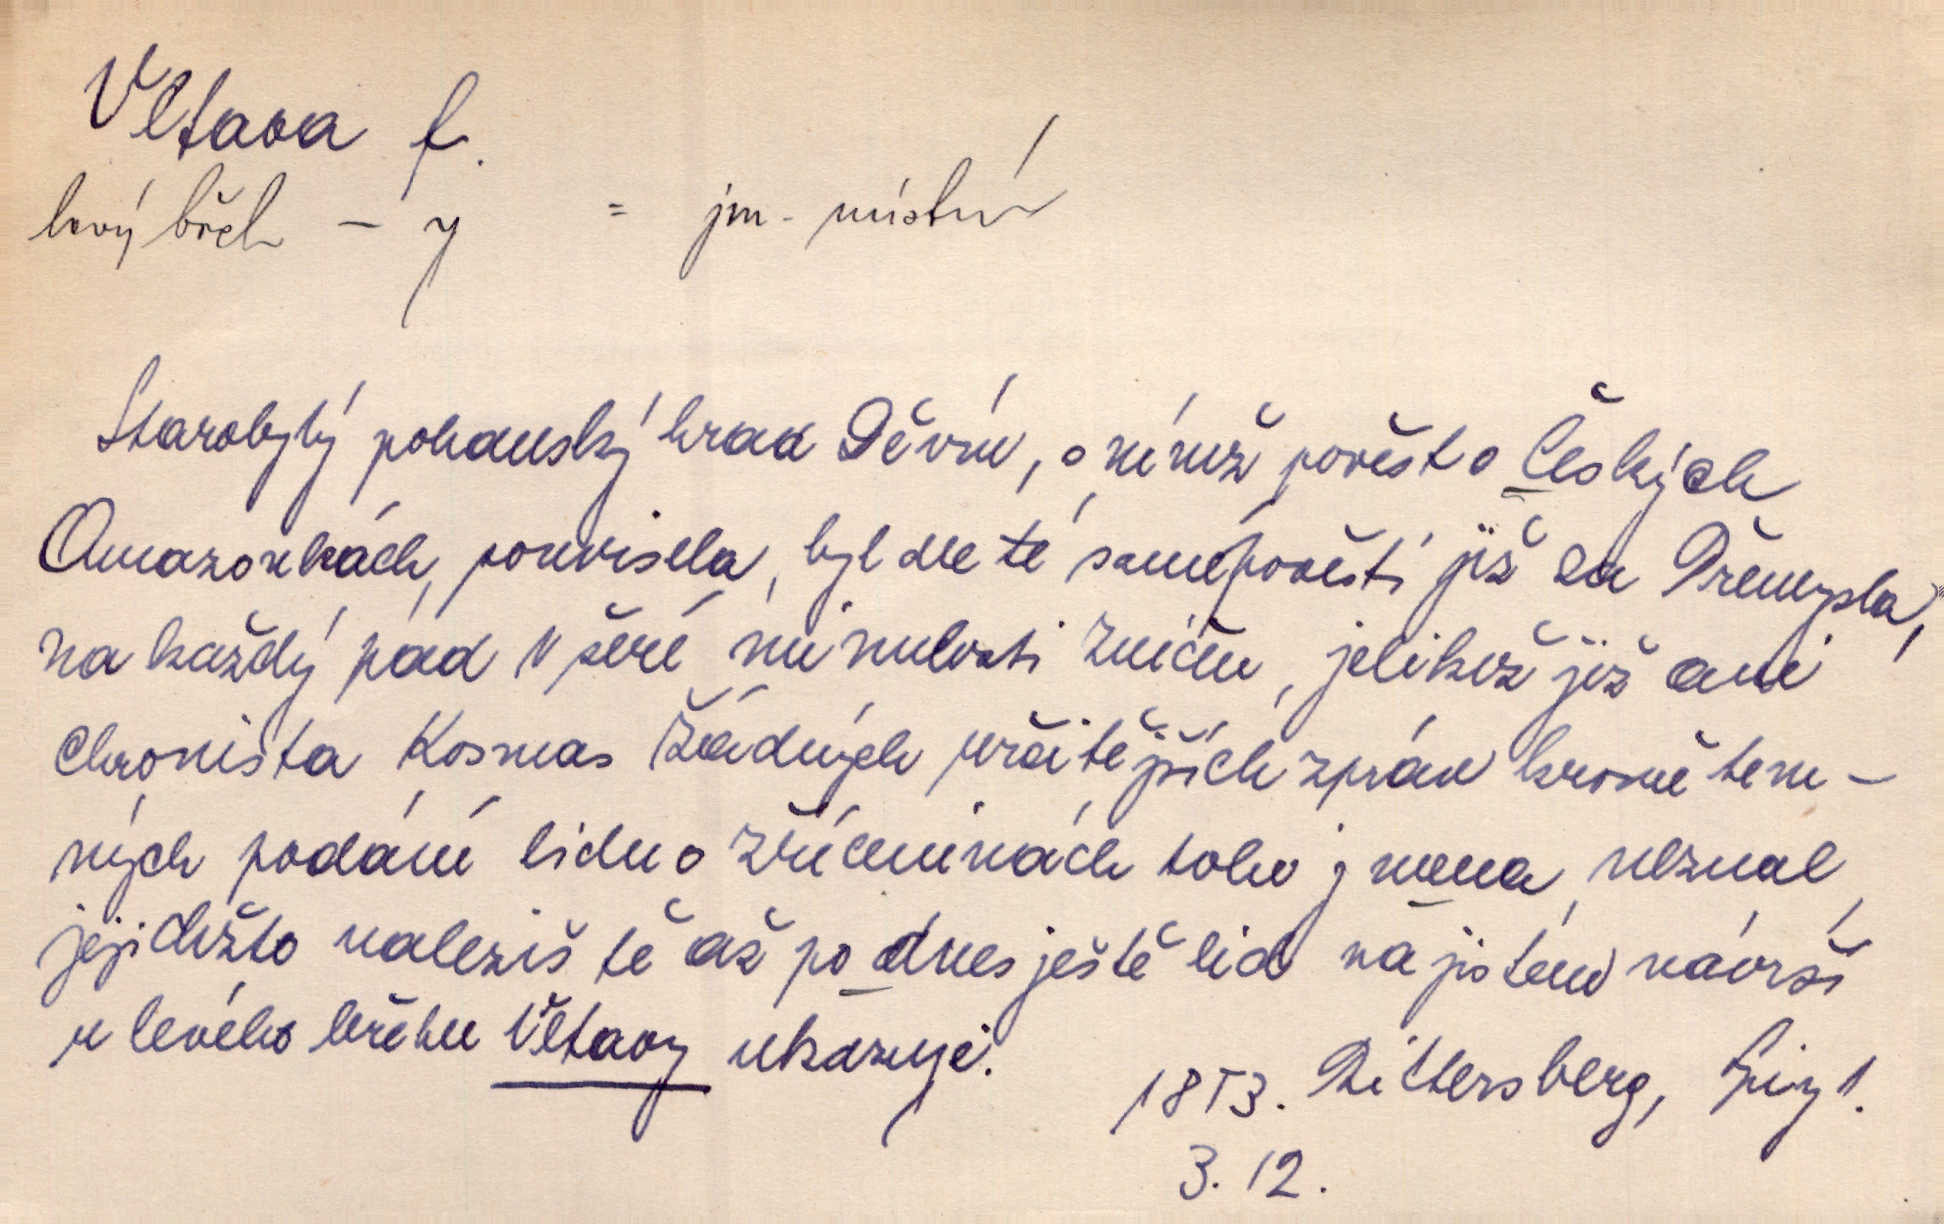 Vltava f.
levý břeh – y = jm. místní
Starobylý pohanský hrad Děvín, o němž pověst o Českých
Amazonkách, pouvisela, byl dle té samé pověsti již za Přemysla,
na každý pád v šeré minulosti zničen, jelikož již ani
chronista Kosmas žádných určitějších zpráv kromě tem-
ných podání lidu o zříceninách toho jmena neznal,
jejichžto naleziště až po dnes ještě lid na jistém návrší
u levého břehu Vltavy ukazuje.
1853. Rittersberg, 1.
3. 12.